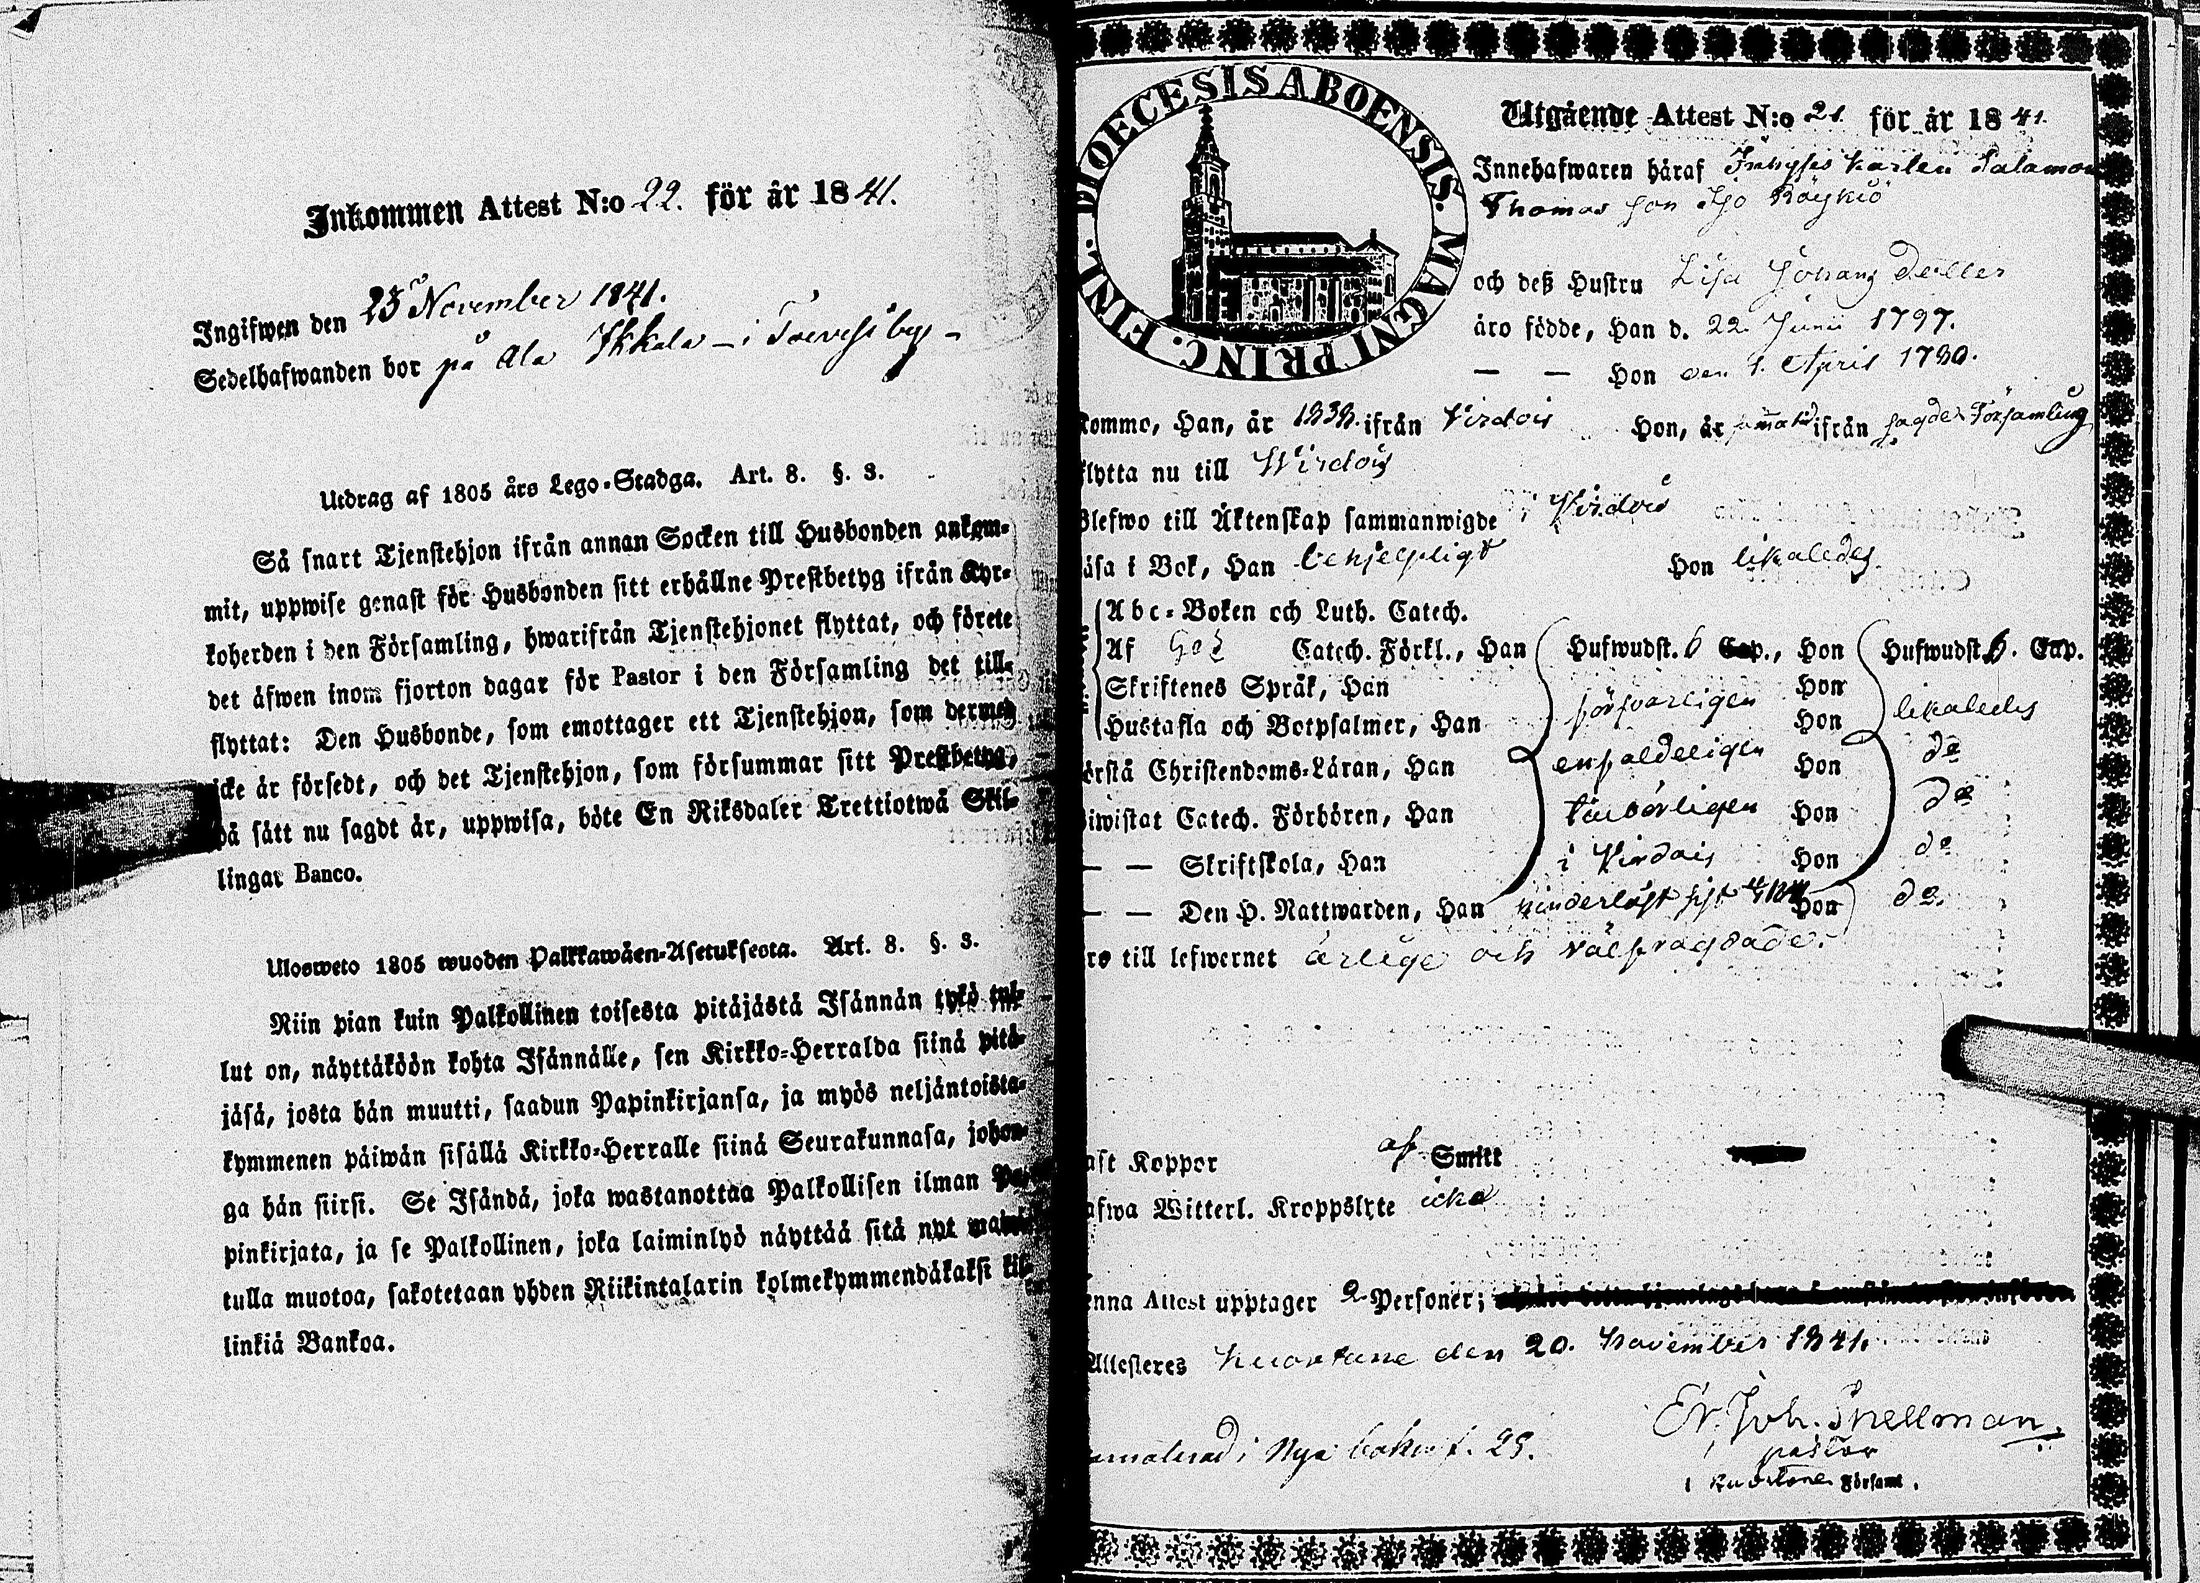 Inkommen Attest N:o 22. för år 1841.
Ingifwen den 25 November 1841.
Sedelhafwanden bor på Ala Ikkala - i Toivesi by -
Utdrag af 1805 års Lego-Stadga. Art. 8. §. 3.
Så snart Tjenstehjon ifrån annan Socken till Husbonden ankom-
mit, uppwise genast för Husbonden sitt erhållne Prestbetyg ifrån Kyr-
koherden i den Församling, hwarifrån Tjenstehjonet flyttat, och förete
det äfwen inom fjorton dagar för Pastor i den Församling det till-
flyttat: Den Husbonde, som emottager ett Tjenstehjon, som dermed
icke är försedt, och det Tjenstehjon, som försummar sitt Prestbetyg,
på sätt nu sagdt är, uppwisa, böte En Riksdaler Trettiotwå Skil-
lingar Banco.
Ulosweto 1805 wuoden Palkkawäen-Asetuksesta. Art. 8. §. 3.
Niin pian kuin Palkollinen toisesta pitäjästä Isännän tykö tul-
lut on, näyttäköön kohta Isännälle, sen Kirkko-Herralda siinä pitä-
jäsä, josta hän muutti, saadun Papinkirjansa, ja myös neljäntoista-
kymmenen päiwän sisällä Kirkko-Herralle siinä Seurakunnasa, johon-
ga hän siirsi. Se Isändä, joka wastanottaa Palkollisen ilman Pa-
pinkirjata, ja se Palkollinen, joka laiminlyö näyttää sitä nyt
tulla muotoa, sakotetaan yhden Riikintalarin kolmekymmendäkaksi kil-
linkiä Bankoa.
FINL. DIOECESIS ABOENSIS. MAGNI PRINC.
Utgående Attest N:o 21 för år 1841.
Innehafwaren häraf Inhyses karlen Salomon
Thomas son Iso Röyskiö
och deß Hustru Lisa Johans Dotter
äro födde, Han d. 22 Junii 1797.
— — Hon den 1. April 1780.
kommo, Han, år 1838. ifrån Virdois Hon, år samma ifrån sagde Församling
flytta nu till Wirdois
Blefwo till Äktenskap sammanwigde i Virdois
läsa i Bok, Han behjelpligt Hon likaledes
Abc-Boken och Luth. Catech.
Af Catech. Förkl., Han Hufwudst. 6 Cap., Hon Hufwudst. 6. Cap.
Skriftenes Språk, Han Hon
Hustafla och Botpsalmer, Han försvarligen Hon likaledes
örstå Christendoms-Läran, Han enfaldeligen Hon do
iwistat Catech. Förhören, Han tilbörligen Hon do
— — Skriftskola, Han i Virdois Hon do
— — Den H. Nattwarden, Han hinderlöst sist Hon do.
ro till lefwernet ärlige och välfrägdade.
aft Koppor af Smitt
afwa Witterl. Kroppslyte icke
enna Attest upptager 2 Personer;
Attesteres Kuortane den 20. November 1841.
Er. Joh. Snellman
pastor
i Kuortane Församl.
i Nya boken f. 25.